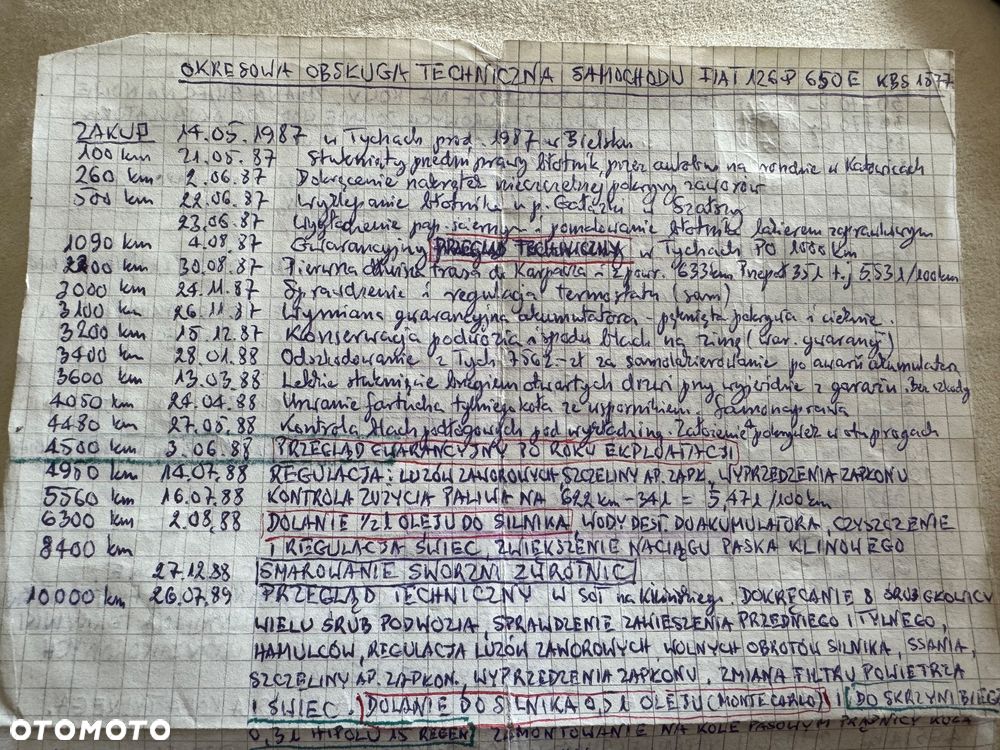 OKRESOWA OBSŁUGA TECHNICZNA SAMOCHODU FIAT 126P 650E KBS 1877
ZAKUP 14.05.1987 w Tychach prod. 1987 w Bielsku
100 km 21.05.87 Stuknięty przedni prawy błotnik, przez autobus na rondzie w Katowicach
260 km 2.06.87 Dokręcenie nakrętek nieszczelnej pokrywy zaworów
500 km 22.06.87 Wyklepanie błotnika u p. w
23.06.87 Wygładzenie pap. ściernym i pomalowanie błotnika lakierem zaprawkowym
1090 km 4.08.87 Gwarancyjny PRZEGLĄD TECHNICZNY w Tychach PO 1000 km
2200 km 30.08.87 Pierwsza trasa do Karpacza i z powr. 633km Przepał 35l t.j 5.53l/100km
3000 km 24.11.87 Sprawdzenie i regulacja termostatu (sam)
3100 km 26.11.87 Wymiana gwarancyjna akumulatora - pęknięta pokrywa i cieknie.
3200 km 15.12.87 Konserwacja podwozia i spodu blach na zimę (war. gwarancji)
3400 km 28.01.88 Odszkodowanie z Tych 7562-zł za samolakierowanie po awarii akumulatora
3600 km 13.03.88 Lekkie stuknięcie brzegiem otwartych drzwi przy wyjeździe z garażu. Bez szkody
4050 km 24.04.88 Urwanie fartucha tylniego koła ze wspornikiem. Samonaprawa
4480 km 27.05.88 Kontrola blach podłogowych pod wykładziną. Założenie 4 pokrywek w otw. progach
4500 km 3.06.88 PRZEGLĄD GWARANCYJNY PO ROKU EKPLOATACJI
4900 km 14.07.88 REGULACJA: LUZÓW ZAWOROWYCH SZCZELINY AP. ZAPŁ, WYPRZEDZENIA ZAPŁONU
5560 km 16.07.88 KONTROLA ZUŻYCIA PALIWA NA 622 km - 34 l = 5,47 l/100 km
6300 km 2.08.88 DOLANIE 1/2 l OLEJU DO SILNIKA, WODY DEST. DO AKUMULATORA, CZYSZCZENIE
8400 km I REGULACJA ŚWIEC, ZWIĘKSZENIE NACIĄGU PASKA KLINOWEGO
27.12.88 SMAROWANIE SWORZNI ZWROTNIC
10000 km 26.07.89 PRZEGLĄD TECHNICZNY W SOT na Kilińskiego. DOKRĘCANIE 8 ŚRUB GŁOWICY
WIELU ŚRUB PODWOZIA, SPRAWDZENIE ZAWIESZENIA PRZEDNIEGO I TYLNEGO,
HAMULCÓW, REGULACJA LUZÓW ZAWOROWYCH WOLNYCH OBROTÓW SILNIKA, SSANIA,
SZCZELINY AP. ZAPŁON. WYPRZEDZENIA ZAPŁONU, ZMIANA FILTRU POWIETRZA
I ŚWIEC. DOLANIE DO SILNIKA 0,5 l OLEJU (MONTECARLO) I DO SKRZYNI BIEG
0,3 l HIPOLU 15 ZAMONTOWANIE NA KOLE PASOWYM PRĄDNICY
OTOMOTO